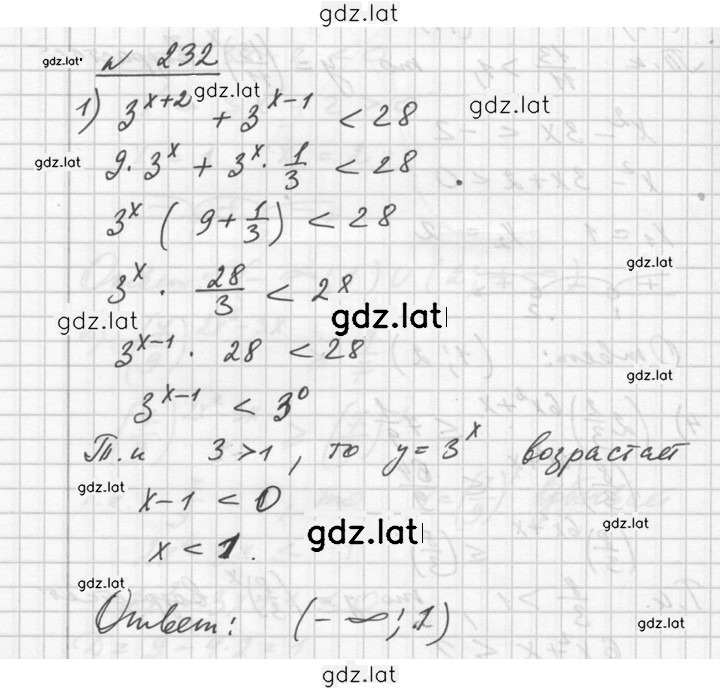 gdz.lat
gdz.lat
№ 232
gdz.lat
1) 3^{x+2} + 3^{x-1} < 28
gdz.lat
gdz.lat
9 · 3^x + 3^x · 1/3 < 28
3^x ( 9 + 1/3 ) < 28
gdz.lat
3^x · 28/3 < 28
gdz.lat
gdz.lat
3^{x-1} · 28 < 28
gdz.lat
3^{x-1} < 3^0
Т.к 3 > 1, то y = 3^x возрастает
gdz.lat
x - 1 < 0
gdz.lat
gdz.lat
x < 1.
gdz.lat
Ответ: (-∞; 1)
gdz.lat
gdz.lat